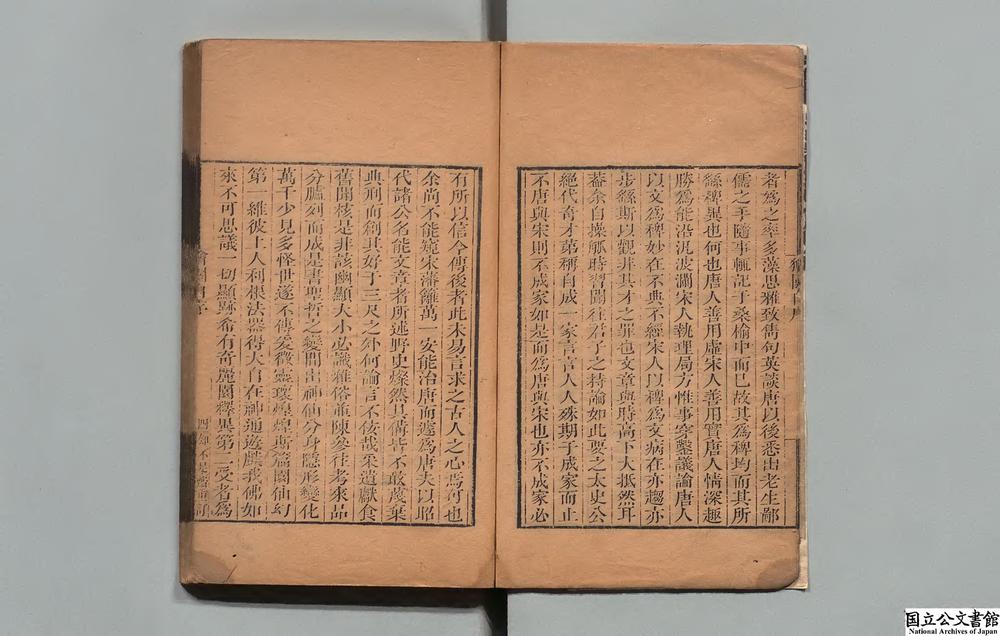 者為之率多藻思雅致雋句英談唐以後悉出老生鄙
儒之手隨事輒記于桑榆中而已故其為稗均而其所
繇稗異也何也唐人善用虛宋人善用實唐人情深趣
勝為能沿汎波瀾宋人執理局方惟事穿鑿議論唐人
以文為稗妙在不典不經宋人以稗為文病在亦趨亦
步繇斯以觀非其才之罪也文章與時高下大抵然耳
葢余自操觚時習聞往君子之持論如此要之太史公
絕代奇才第稱自成一家言言人人殊期于成家而止
不唐與宋則不成家如是而為唐與宋也亦不成家必
獪園自序
有所以信今傳後者此未易言求之古人之心焉可也
余尚不能窺宋藩籬萬一安能治唐而遽為唐夫以昭
代諸公名能文章者所述野史燦然具備皆不敢蔑棄
典刑而創其好于三尺之外何論言不佞哉采遺獻食
舊聞核是非彰幽顯大小必識雜俗兼陳參往考來品
分臚列而成是書聖哲之變間出神仙分身隱形變化
萬千少見多怪世遂不傳爰徵靈瓌煌煌斯篇園仙幻
第一維彼上人利根法器得大自在神通遊戲我佛如
來不可思議一切顯跡希有奇麗園釋異第二受者為
獪園自序
四